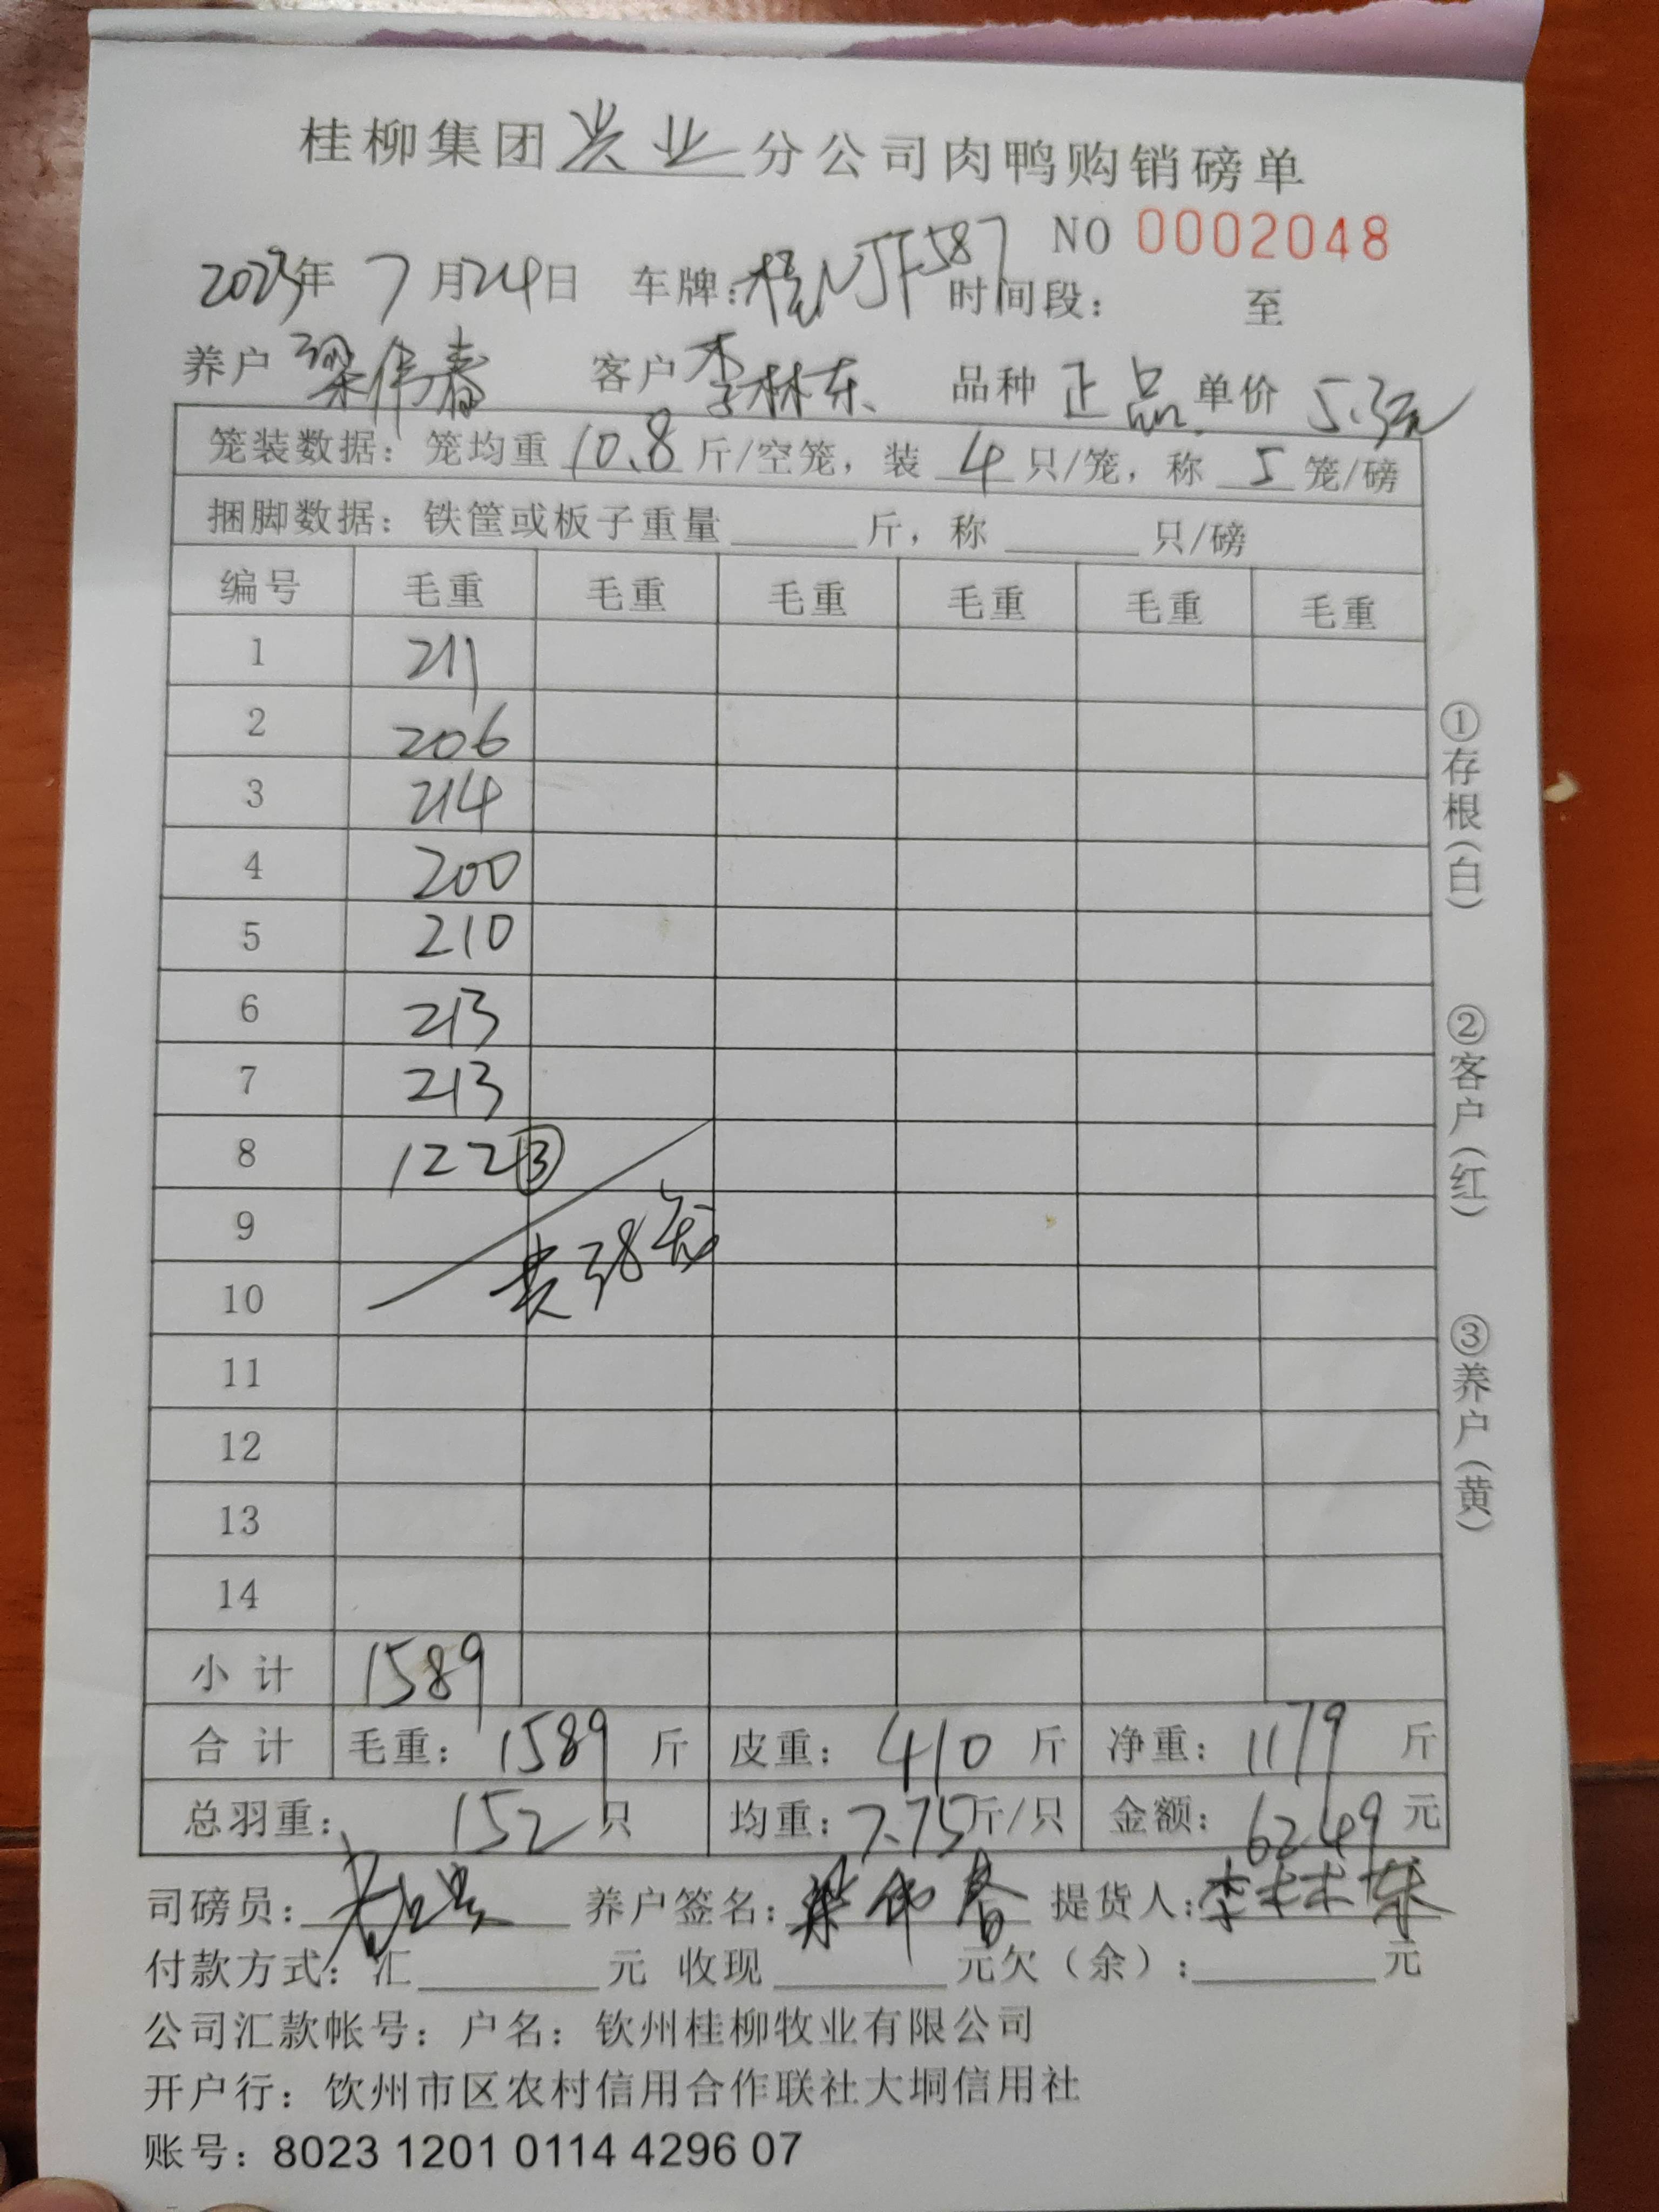 桂柳集团兴业分公司肉鸭购销磅单
NO 0002048
2023年 7月24日 车牌:桂NJF587 时间段: 至
养户 梁伟春 客户 李林东 品种 正品 单价 5.3元
笼装数据:笼均重 10.8 斤/空笼,装 4 只/笼,称 5 笼/磅
捆脚数据:铁筐或板子重量 斤,称 只/磅
编号 毛重 毛重 毛重 毛重 毛重 毛重
1 211
2 206
3 214
4 200
5 210
6 213
7 213
8 122 ③
9
共38笼
10
11
12
13
14
小计 1589
合计 毛重:1589 斤 皮重:410 斤 净重:1179 斤
总羽重:152 只 均重:7.75斤/只 金额:6249 元
司磅员: 养户签名:梁伟春 提货人:李林东
付款方式:汇 元 收现 元欠(余): 元
公司汇款帐号:户名:钦州桂柳牧业有限公司
开户行:饮州市区农村信用合作联社大垌信用社
账号:8023 1201 0114 4296 07
①存根(白)
②客户(红)
③养户(黄)